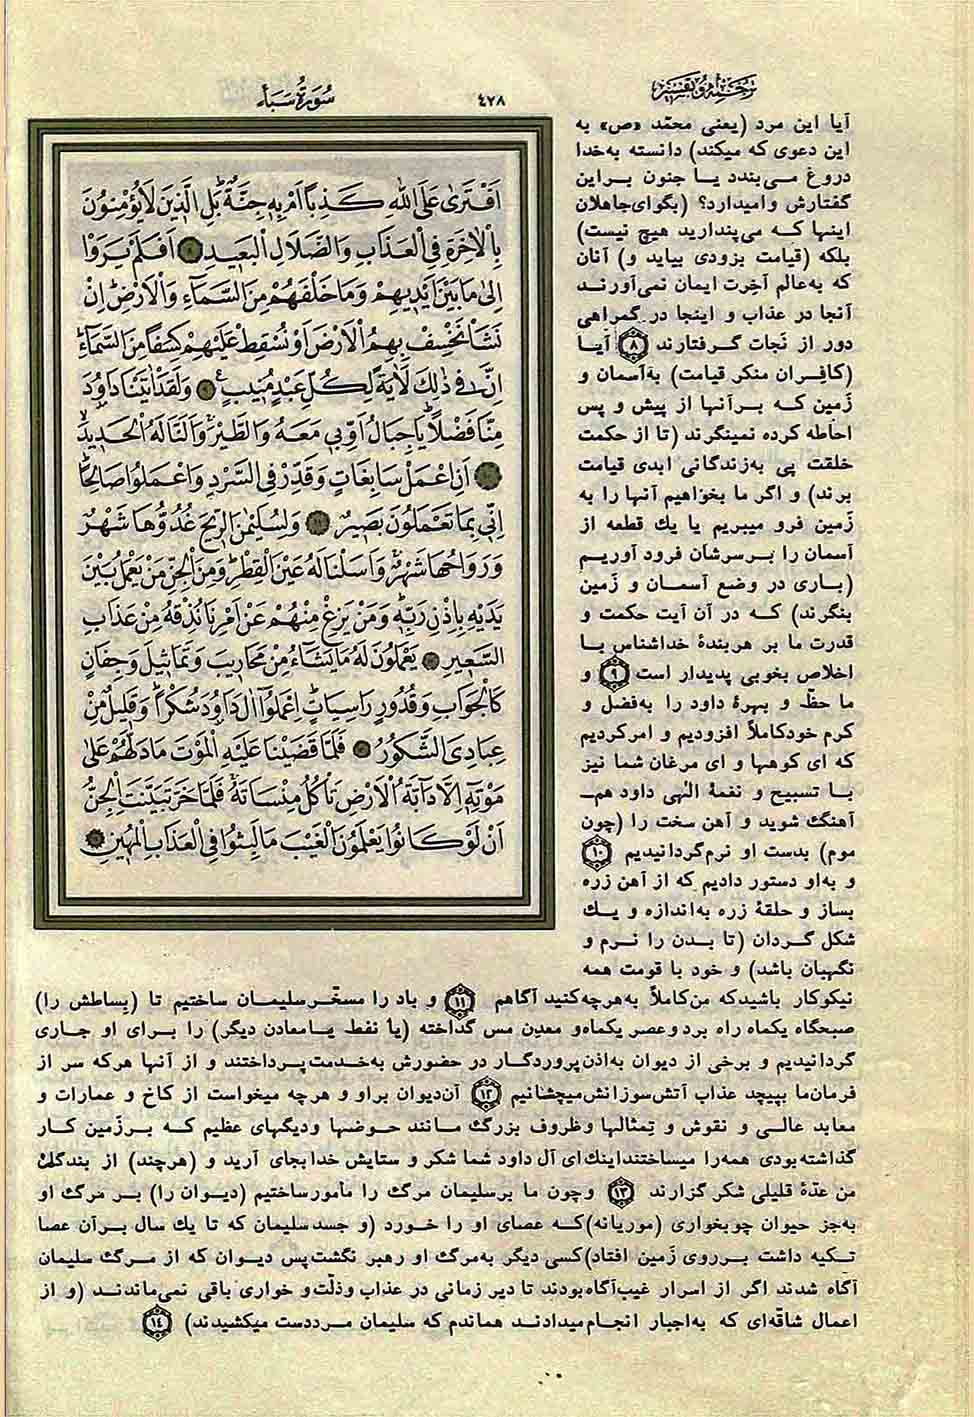 ترجمه و تفسیر
٤٧٨
سُورَةُ سَبَأ
آیا این مرد (یعنی محمّد «ص» به
این دعوی که میکند) دانسته به‌خدا
دروغ می‌بندد یا جنون براین
گفتارش وامیدارد؟ (بگوای‌جاهلان
اینها که می‌پندارید هیچ نیست)
بلکه (قیامت بزودی بیاید و) آنان
که به‌عالم آخرت ایمان نمی‌آورند
آنجا در عذاب و اینجا در گمراهی
دور از نجات گرفتارند ٨ آیا
(کافران منکر قیامت) به‌آسمان و
زمین که برآنها از پیش و پس
احاطه کرده نمینگرند (تا از حکمت
خلقت پی به‌زندگانی ابدی قیامت
برند) و اگر ما بخواهیم آنها را به
زمین فرو میبریم یا یك قطعه از
آسمان را برسرشان فرود آوریم
(باری در وضع آسمان و زمین
بنگرند) که در آن آیت حکمت و
قدرت ما بر هربندهٔ خداشناس با
اخلاص بخوبی پدیدار است ٩ و
ما حظّ و بهرهٔ داود را به‌فضل و
کرم خودکاملاً افزودیم و امرکردیم
که ای کوهها و ای مرغان شما نیز
با تسبیح و نغمهٔ الهی داود هم‌ـ
آهنگ شوید و آهن سخت را (چون
موم) بدست او نرم‌گردانیدیم ١٠
و به‌او دستور دادیم که از آهن زره
بساز و حلقهٔ زره به‌اندازه و یك
شکل گردان (تا بدن را نرم و
نگهبان باشد) و خود با قومت همه
اَفْتَرىٰ عَلَى اللّٰهِ كَذِبًا اَمْ بِهِ جِنَّةٌ بَلِ الَّذينَ لَا يُؤْمِنُونَ
بِالْاٰخِرَةِ فِى الْعَذَابِ وَالضَّلَالِ الْبَعيدِ ٨ اَفَلَمْ يَرَوْا
اِلىٰ مَا بَيْنَ اَيْديهِمْ وَمَا خَلْفَهُمْ مِنَ السَّمَاءِ وَالْاَرْضِ اِنْ
نَشَأْ نَخْسِفْ بِهِمُ الْاَرْضَ اَوْ نُسْقِطْ عَلَيْهِمْ كِسَفًا مِنَ السَّمَاءِ
اِنَّ فى ذٰلِكَ لَاٰيَةً لِكُلِّ عَبْدٍ مُنيبٍ ٩ وَلَقَدْ اٰتَيْنَا دَاوُدَ
مِنَّا فَضْلًا يَا جِبَالُ اَوِّبى مَعَهُ وَالطَّيْرَ وَاَلَنَّا لَهُ الْحَديدَ
١٠ اَنِ اعْمَلْ سَابِغَاتٍ وَقَدِّرْ فِى السَّرْدِ وَاعْمَلُوا صَالِحًا
اِنّى بِمَا تَعْمَلُونَ بَصيرٌ ١١ وَلِسُلَيْمٰنَ الرّيحَ غُدُوُّهَا شَهْرٌ
وَرَوَاحُهَا شَهْرٌ وَاَسَلْنَا لَهُ عَيْنَ الْقِطْرِ وَمِنَ الْجِنِّ مَنْ يَعْمَلُ بَيْنَ
يَدَيْهِ بِاِذْنِ رَبِّهِ وَمَنْ يَزِغْ مِنْهُمْ عَنْ اَمْرِنَا نُذِقْهُ مِنْ عَذَابِ
السَّعيرِ ١٢ يَعْمَلُونَ لَهُ مَا يَشَاءُ مِنْ مَحَاريبَ وَتَمَاثيلَ وَجِفَانٍ
كَالْجَوَابِ وَقُدُورٍ رَاسِيَاتٍ اِعْمَلُوا اٰلَ دَاوُدَ شُكْرًا وَقَليلٌ مِنْ
عِبَادِىَ الشَّكُورُ ١٣ فَلَمَّا قَضَيْنَا عَلَيْهِ الْمَوْتَ مَا دَلَّهُمْ عَلىٰ
مَوْتِهِ اِلَّا دَابَّةُ الْاَرْضِ تَأْكُلُ مِنْسَاَتَهُ فَلَمَّا خَرَّ تَبَيَّنَتِ الْجِنُّ
اَنْ لَوْ كَانُوا يَعْلَمُونَ الْغَيْبَ مَا لَبِثُوا فِى الْعَذَابِ الْمُهينِ ١٤
نیکوکار باشیدکه من‌کاملاً به‌هرچه‌کنید آگاهم ١١ و باد را مسخّر سلیمان ساختیم تا (بساطش را)
صبحگاه یکماه راه برد و عصر یکماه‌و معدن مس گداخته (یا نفط یا‌معادن دیگر) را برای او جاری
گردانیدیم و برخی از دیوان به‌اذن‌پروردگار در حضورش به‌خدمت‌پرداختند و از آنها هرکه سر از
فرمان‌ما بپیچد عذاب آتش‌سوزانش‌میچشانیم ١٢ آن‌دیوان براو و هرچه میخواست از کاخ و عمارات و
معابد عالی و نقوش و تمثالها وظروف بزرگ مانند حوضها ودیگهای عظیم که برزمین کار
گذاشته‌بودی همه‌را میساختنداینك‌ای آل داود شما شکر و ستایش خدابجای آرید و (هرچند) از بندگان
من عدّهٔ قلیلی شکر گزارند ١٣ وچون ما برسلیمان مرگ را مأمورساختیم (دیوان را) بر مرگ او
به‌جز حیوان چوبخواری (موریانه)که عصای او را خورد (و جسد سلیمان که تا یك سال برآن عصا
تکیه داشت برروی زمین افتاد)کسی دیگر به‌مرگ او رهبر نگشت‌پس دیوان که از مرگ سلیمان
آگاه شدند اگر از اسرار غیب‌آگاه‌بودند تا دیر زمانی در عذاب وذلّت‌و خواری باقی نمی‌ماندند (و از
اعمال شاقه‌ای که به‌اجبار انجام‌میدادند هماندم که سلیمان مرد دست میکشیدند) ١٤